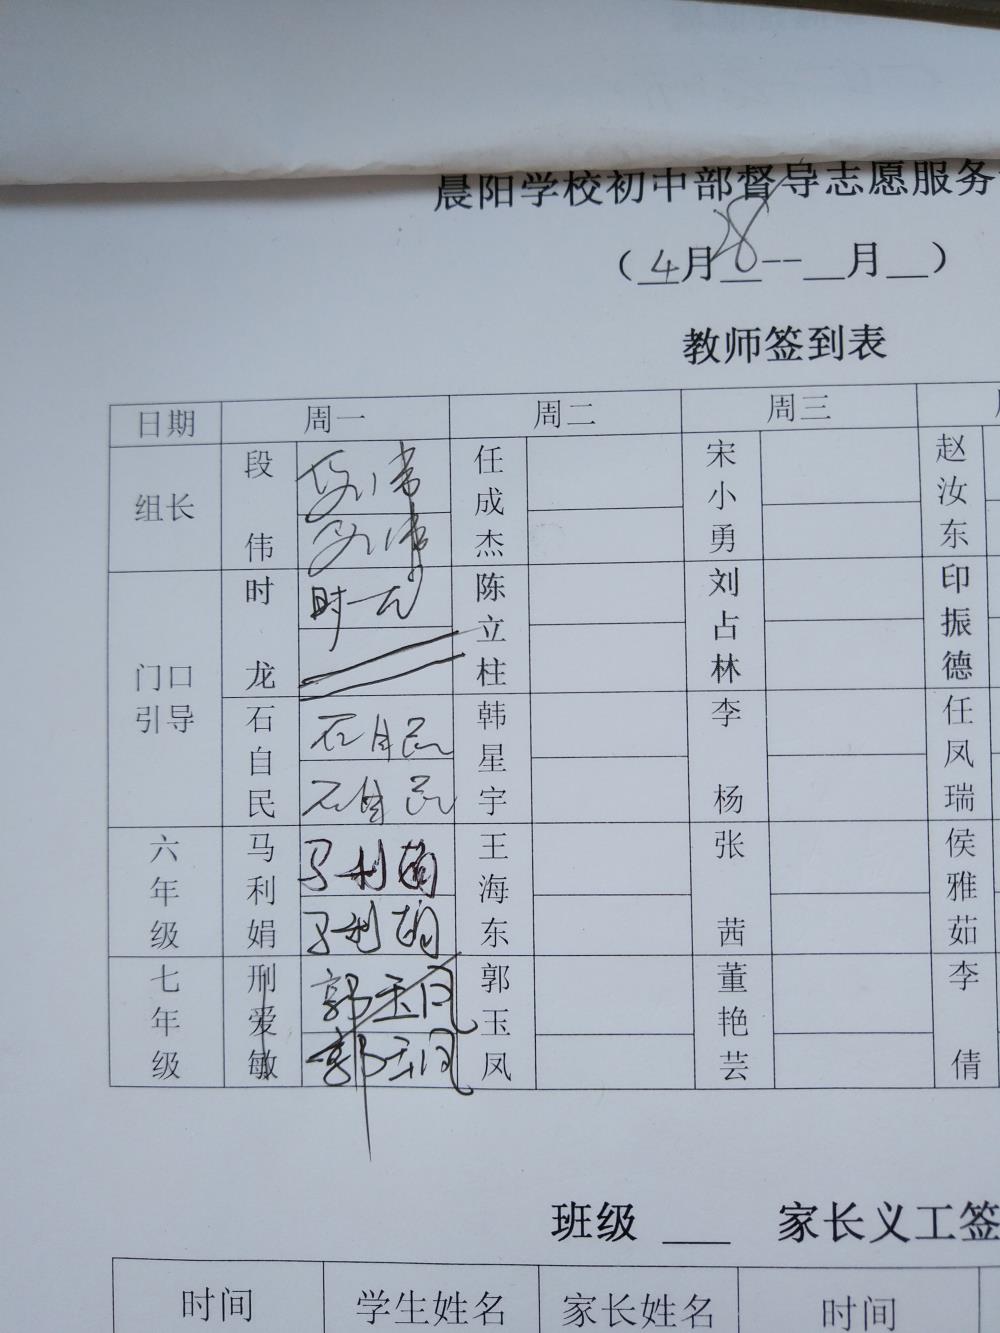 晨阳学校初中部督导志愿服务
（4月28--__月__）
教师签到表
日期 周一 周二 周三
组长 段伟 段伟 任成杰 宋小勇 赵汝东
段伟
门口引导 时龙 时龙 陈立柱 刘占林 印振德
石自民 石自民 韩星宇 李杨 任凤瑞
石自民
六年级 马利娟 马利娟 王海东 张茜 侯雅茹
马利娟
七年级 刑爱敏 郭玉凤 郭玉凤 董艳芸 李倩
郭玉凤
班级 ___ 家长义工签
时间 学生姓名 家长姓名 时间